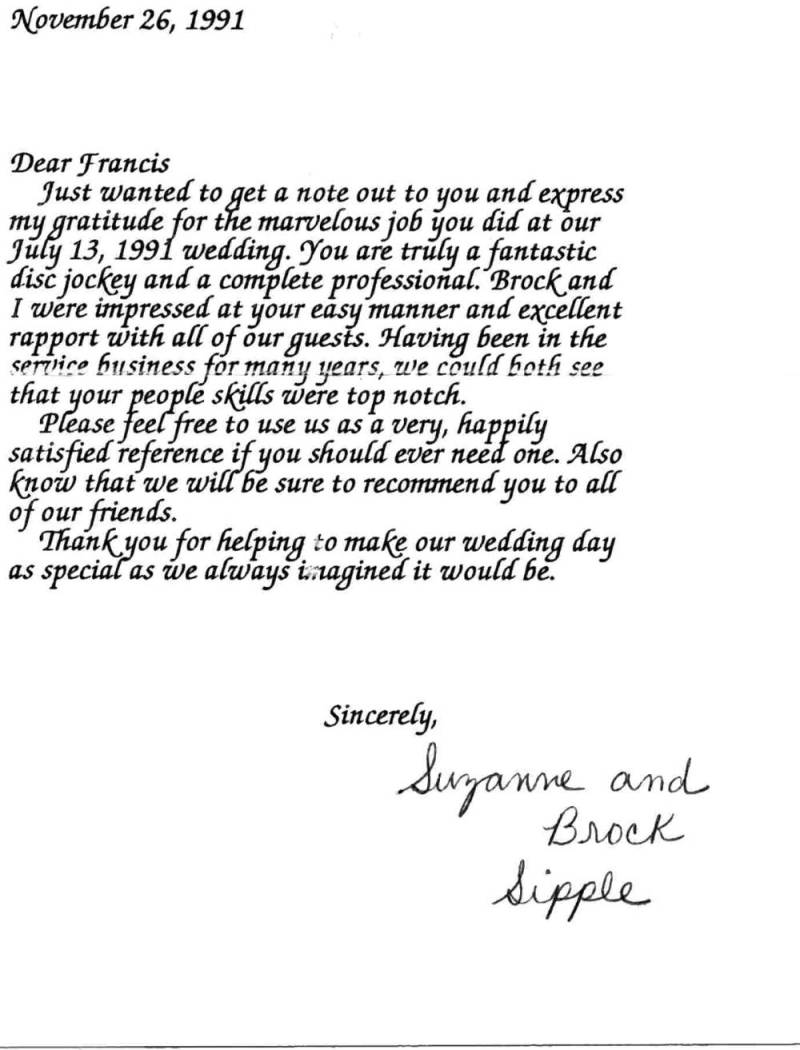 November 26, 1991
Dear Francis
Just wanted to get a note out to you and express
my gratitude for the marvelous job you did at our
July 13, 1991 wedding. You are truly a fantastic
disc jockey and a complete professional. Brock and
I were impressed at your easy manner and excellent
rapport with all of our guests. Having been in the
service business for many years, we could both see
that your people skills were top notch.
Please feel free to use us as a very, happily
satisfied reference if you should ever need one. Also
know that we will be sure to recommend you to all
of our friends.
Thank you for helping to make our wedding day
as special as we always imagined it would be.
Sincerely,
Suzanne and
Brock
Sipple